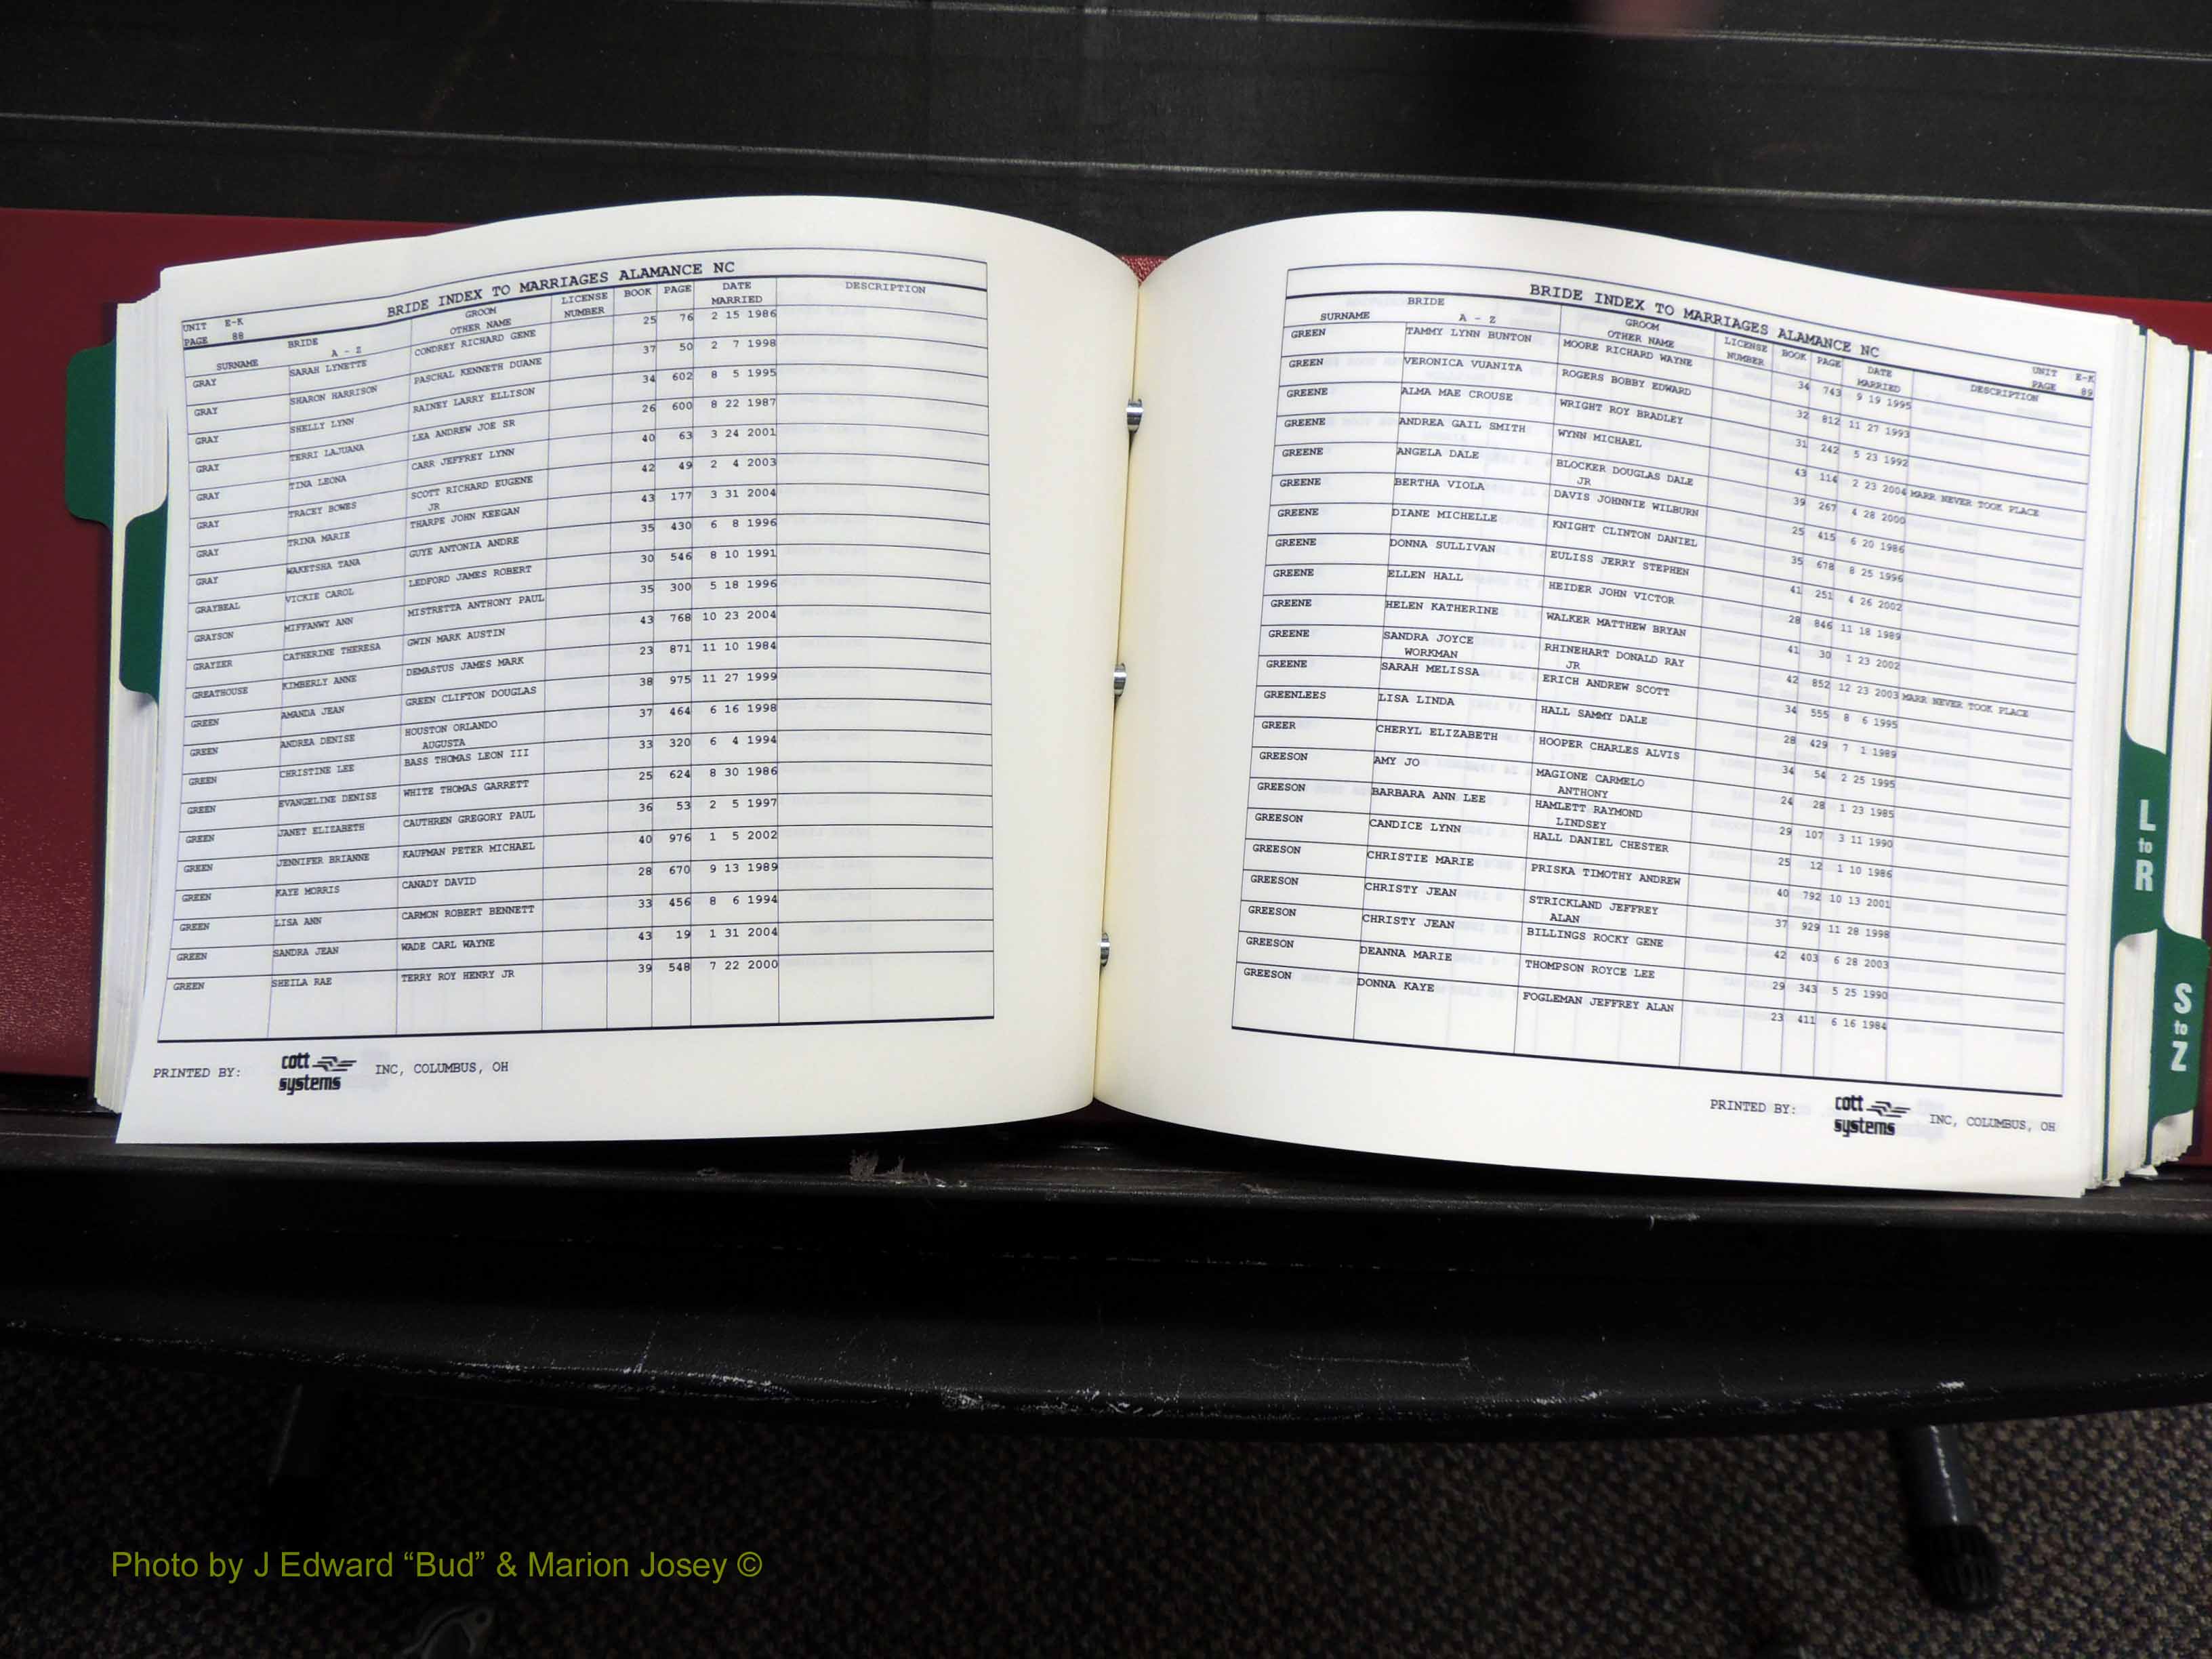 BRIDE INDEX TO MARRIAGES ALAMANCE NC
UNIT E-K
PAGE 88
SURNAME BRIDE A - Z GROOM OTHER NAME LICENSE NUMBER BOOK PAGE DATE MARRIED DESCRIPTION
GRAY SARAH LYNETTE CONDREY RICHARD GENE 25 76 2 15 1986
GRAY SHARON HARRISON PASCHAL KENNETH DUANE 37 50 2 7 1998
GRAY SHELLY LYNN RAINEY LARRY ELLISON 34 602 8 5 1995
GRAY TERRI LAJUANA LEA ANDREW JOE SR 26 600 8 22 1987
GRAY TINA LEONA CARR JEFFREY LYNN 40 63 3 24 2001
GRAY TRACEY BOWES SCOTT RICHARD EUGENE JR 42 49 2 4 2003
GRAY TRINA MARIE THARPE JOHN KEEGAN 43 177 3 31 2004
GRAY WAKETSHA TANA GUYE ANTONIA ANDRE 35 430 6 8 1996
GRAYBEAL VICKIE CAROL LEDFORD JAMES ROBERT 30 546 8 10 1991
GRAYSON MIFFANWY ANN MISTRETTA ANTHONY PAUL 35 300 5 18 1996
GRAYZER CATHERINE THERESA GWIN MARK AUSTIN 43 768 10 23 2004
GREATHOUSE KIMBERLY ANNE DEMASTUS JAMES MARK 23 871 11 10 1984
GREEN AMANDA JEAN GREEN CLIFTON DOUGLAS 38 975 11 27 1999
GREEN ANDREA DENISE HOUSTON ORLANDO AUGUSTA 37 464 6 16 1998
GREEN CHRISTINE LEE BASS THOMAS LEON III 33 320 6 4 1994
GREEN EVANGELINE DENISE WHITE THOMAS GARRETT 25 624 8 30 1986
GREEN JANET ELIZABETH CAUTHREN GREGORY PAUL 36 53 2 5 1997
GREEN JENNIFER BRIANNE KAUFMAN PETER MICHAEL 40 976 1 5 2002
GREEN KAYE MORRIS CANADY DAVID 28 670 9 13 1989
GREEN LISA ANN CARMON ROBERT BENNETT 33 456 8 6 1994
GREEN SANDRA JEAN WADE CARL WAYNE 43 19 1 31 2004
GREEN SHEILA RAE TERRY ROY HENRY JR 39 548 7 22 2000
PRINTED BY: cott systems INC, COLUMBUS, OH
BRIDE INDEX TO MARRIAGES ALAMANCE NC
UNIT E-K
PAGE 89
SURNAME BRIDE A - Z GROOM OTHER NAME LICENSE NUMBER BOOK PAGE DATE MARRIED DESCRIPTION
GREEN TAMMY LYNN BUNTON MOORE RICHARD WAYNE 34 743 9 19 1995
GREEN VERONICA VUANITA ROGERS BOBBY EDWARD 32 812 11 27 1993
GREENE ALMA MAE CROUSE WRIGHT ROY BRADLEY 31 242 5 23 1992
GREENE ANDREA GAIL SMITH WYNN MICHAEL 43 114 2 23 2004 MARR NEVER TOOK PLACE
GREENE ANGELA DALE BLOCKER DOUGLAS DALE JR 39 267 4 28 2000
GREENE BERTHA VIOLA DAVIS JOHNNIE WILBURN 25 415 6 20 1986
GREENE DIANE MICHELLE KNIGHT CLINTON DANIEL 35 678 8 25 1996
GREENE DONNA SULLIVAN EULISS JERRY STEPHEN 41 251 4 26 2002
GREENE ELLEN HALL HEIDER JOHN VICTOR 28 846 11 18 1989
GREENE HELEN KATHERINE WALKER MATTHEW BRYAN 41 30 1 23 2002
GREENE SANDRA JOYCE WORKMAN RHINEHART DONALD RAY JR 42 852 12 23 2003 MARR NEVER TOOK PLACE
GREENE SARAH MELISSA ERICH ANDREW SCOTT 34 555 8 6 1995
GREENLEES LISA LINDA HALL SAMMY DALE 28 429 7 1 1989
GREER CHERYL ELIZABETH HOOPER CHARLES ALVIS 34 54 2 25 1995
GREESON AMY JO MAGIONE CARMELO ANTHONY 24 28 1 23 1985
GREESON BARBARA ANN LEE HAMLETT RAYMOND LINDSEY 29 107 3 11 1990
GREESON CANDICE LYNN HALL DANIEL CHESTER 25 12 1 10 1986
GREESON CHRISTIE MARIE PRISKA TIMOTHY ANDREW 40 792 10 13 2001
GREESON CHRISTY JEAN STRICKLAND JEFFREY ALAN 37 929 11 28 1998
GREESON CHRISTY JEAN BILLINGS ROCKY GENE 42 403 6 28 2003
GREESON DEANNA MARIE THOMPSON ROYCE LEE 29 343 5 25 1990
GREESON DONNA KAYE FOGLEMAN JEFFREY ALAN 23 411 6 16 1984
PRINTED BY: cott systems INC, COLUMBUS, OH
L to R
S to Z
Photo by J Edward “Bud” & Marion Josey ©